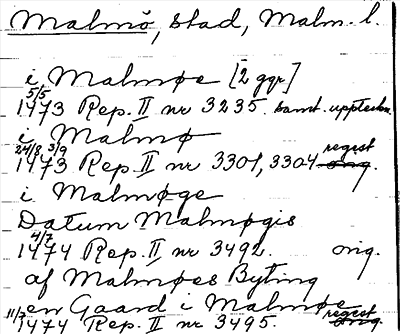 Malmö, stad, Malm. l.
i Malmøe [2 ggr]
5/5
1473 Rep. II nr 3235. samt. uppteckn.
i Malmø
24/8 3/9 regest
1473 Rep. II nr 3301, 3304 orig.
i Malmøge
Datum Malmøgis
4/7
1474 Rep. II nr 3492. orig.
af Malmøes Byting
en Gaard i Malmøe
11/7 regest
1474 Rep. II nr 3495. orig.